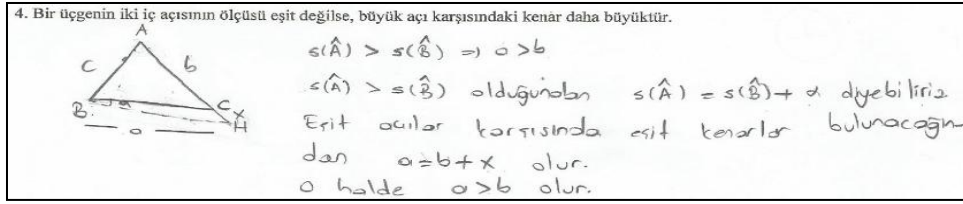 4. Bir üçgenin iki iç açısının ölçüsü eşit değilse, büyük açı karşısındaki kenar daha büyüktür.
A
c b
B α C x
H
a
s(Â) > s(B̂) => a>b
s(Â) > s(B̂) olduğundan s(Â) = s(B̂)+ α diyebiliriz
Eşit açılar karşısında eşit kenarlar bulunacağın-
dan a=b+x olur.
o halde a>b olur.